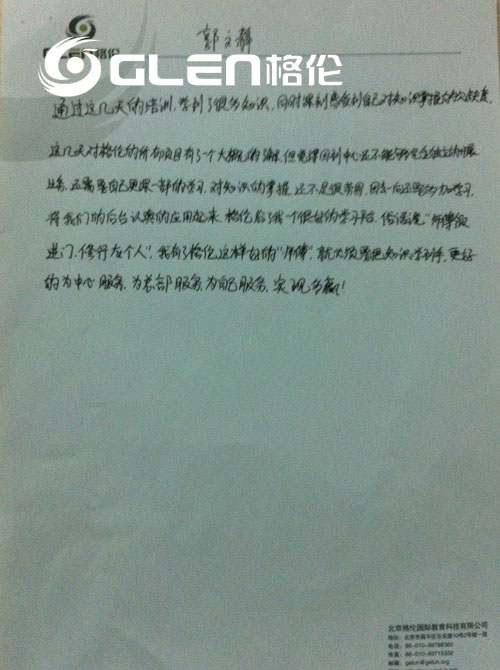 郭文静
GLEN格伦
通过这几天的培训,学到了很多知识,同时深刻感受到自己对知识掌握的欠缺,
这几天对格伦的所有项目有了一个大概的了解,但觉得回到中心还不能够完全独立的开展
业务,还需要自己更深一部的学习,对知识的掌握还不是很牢固,回去后还要努力加学习,
将我们的后台认真的应用起来,格伦给了我一个很好的学习平台,俗话说"师傅领
进门,修行在个人",我有了格伦这样好的"师傅",就必须要把知识学到手,更好
的为中心服务,为总部服务,为自己服务,实现多赢!
北京格伦国际教育科技有限公司
地址:北京市昌平区
电话:86-010-89786360
传真:86-010-89715332
邮箱:gelun@gelun.org